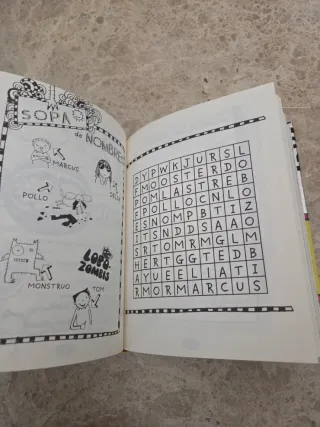 SOPA
de NOMBRES
MARCUS
POLLO
MONSTRUO
LOPO
ZOMBIS
TOM
D Y P W K J U R S L
F M O O S T E R D O
P O M L A S T R E B
F P O L L O C N L O
E S N O M P B T I Z
I T S N D D S A A O
S R T O M R M G L M
H E R T G G T E D B
A Y U E E L I A T I
R M O R M A R C U S